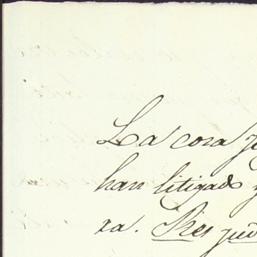 La cosa ju
han litigado y
ra. Res ju